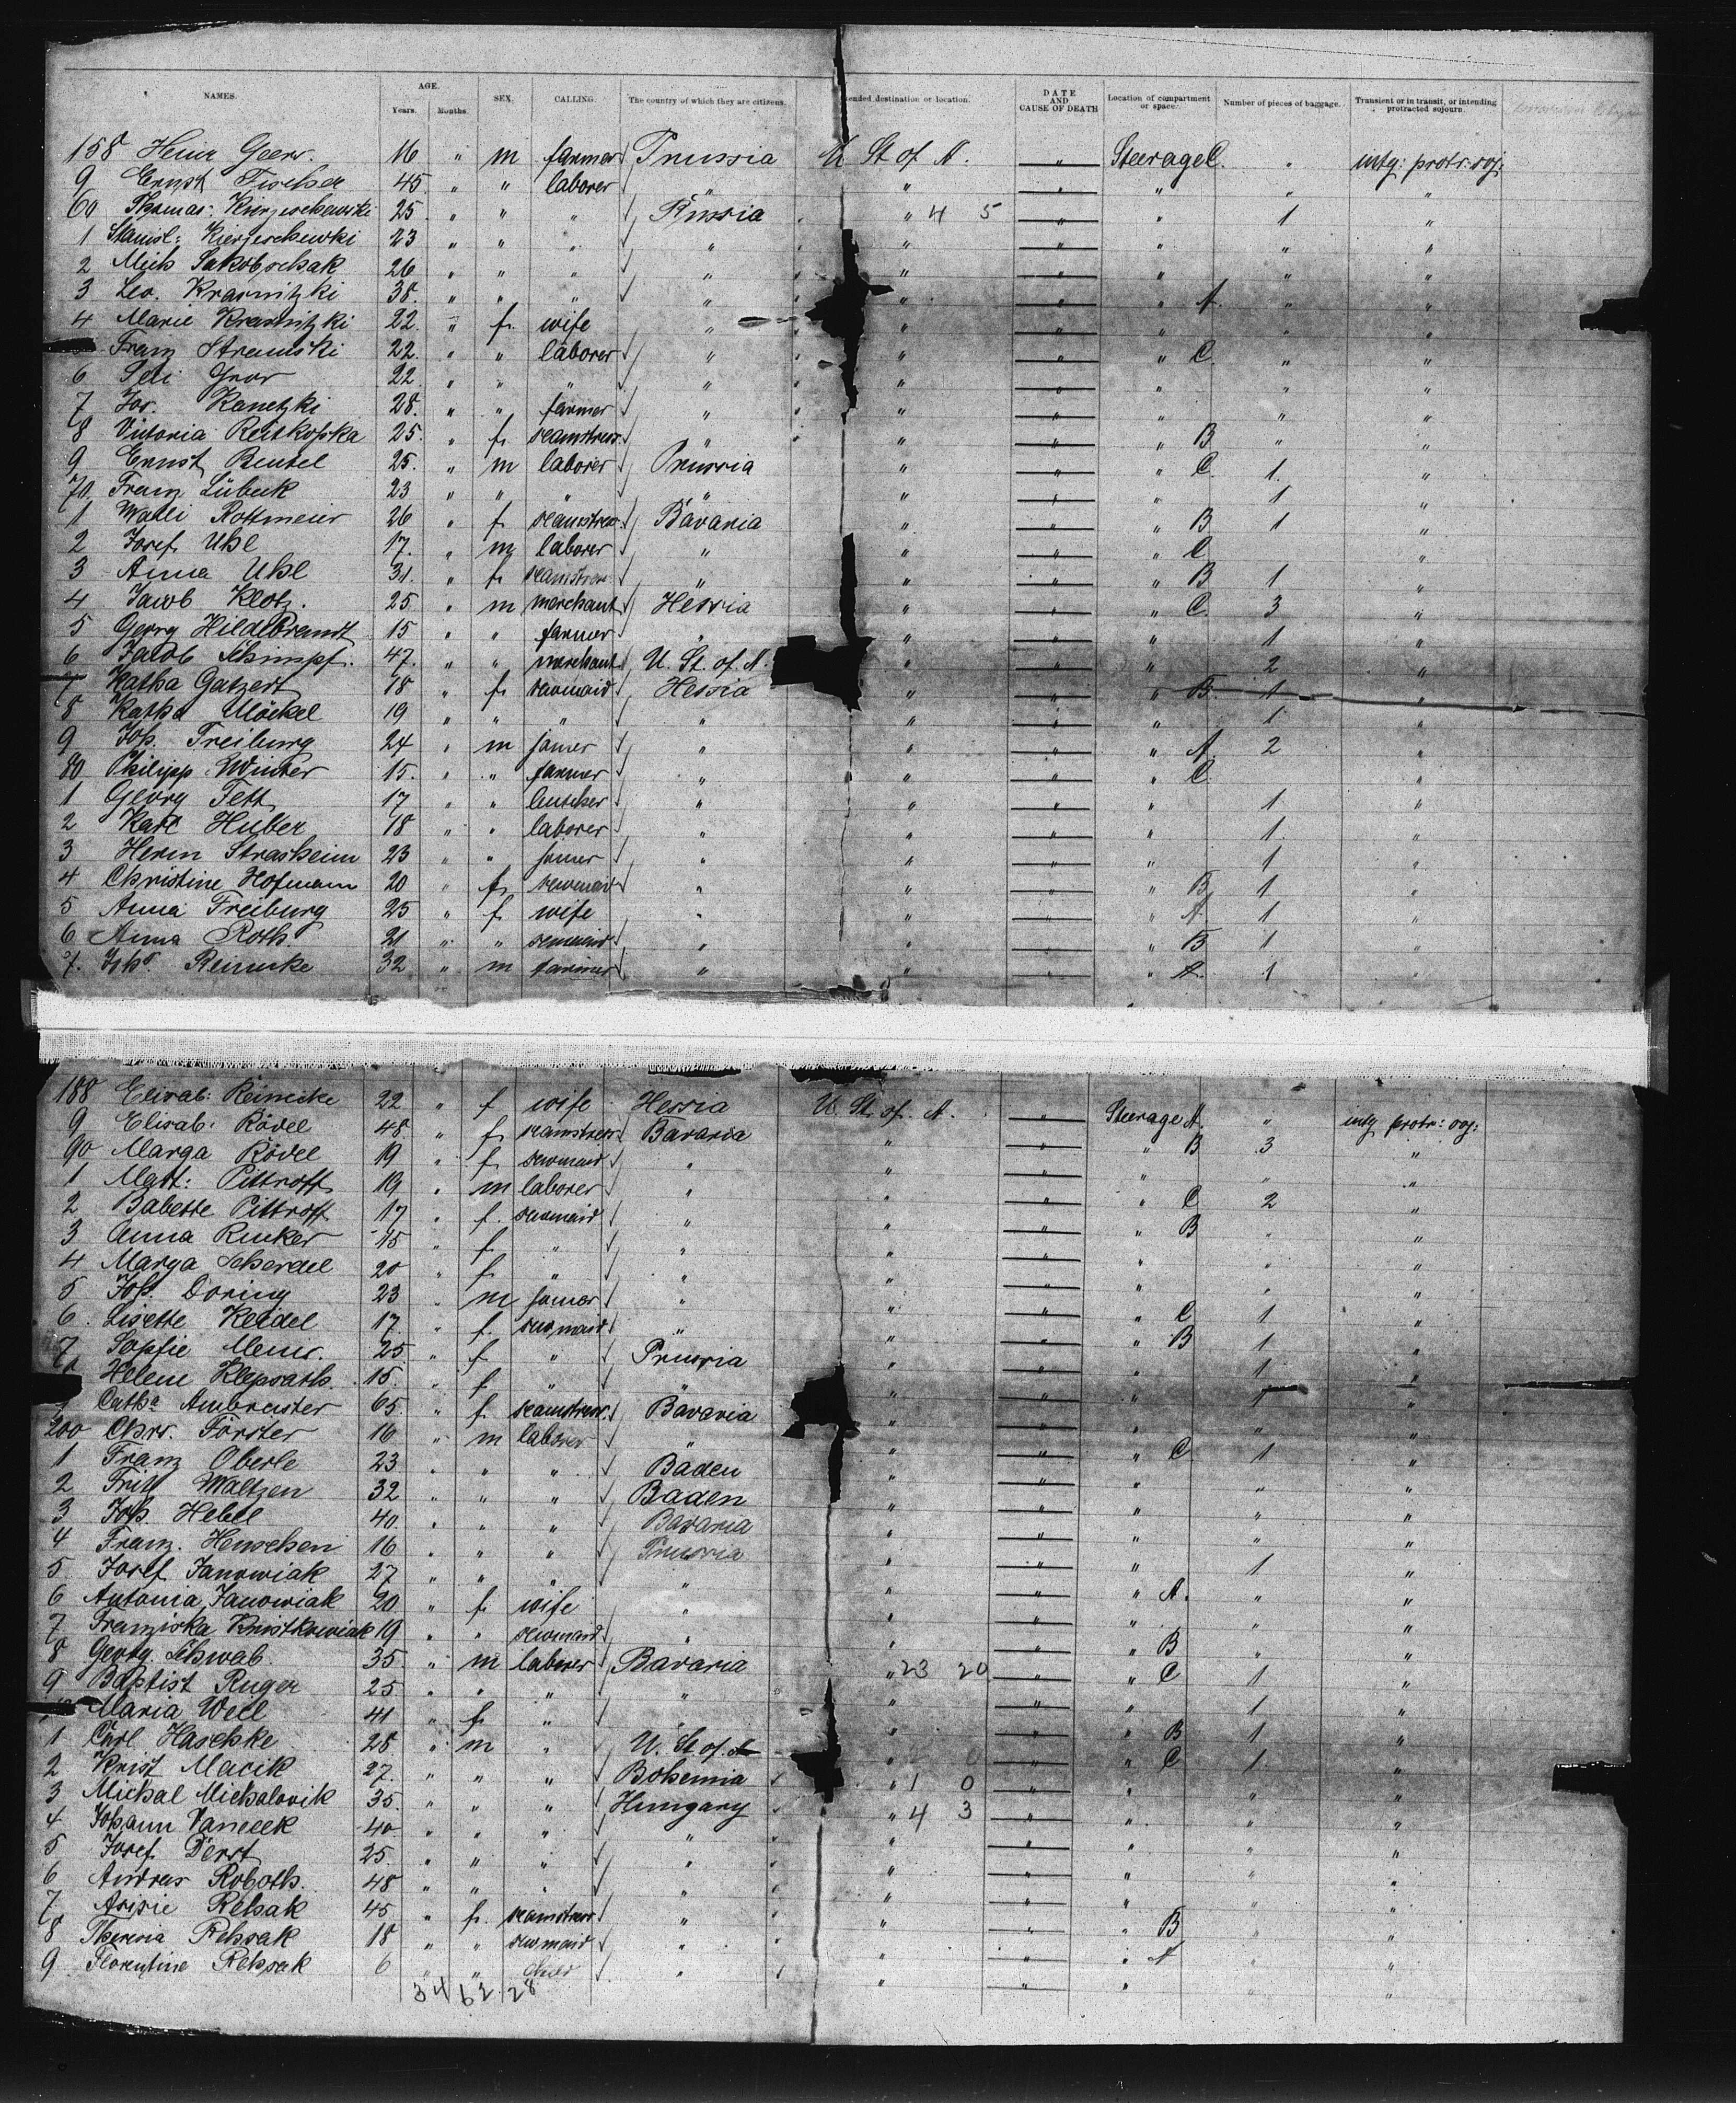 NAMES. AGE. Years. Months. SEX. CALLING. The country of which they are citizens. ended destination or location. DATE AND CAUSE OF DEATH Location of compartment or space. Number of pieces of baggage. Transient or in transit, or intending protracted sojourn.
158 Heinr Geerr. 16 " m farmer Prussia U St of A. — " Steerage C. " intg: protr: soj:
9 Ernst Fischer 45 " " laborer " " — " " " "
60 Thomas: Kierzeschewski 25 " " " Russia " 4 5 — " " 1 "
1 Stanisl: Kierzeschewski 23 " " " " " — " " " "
2 Mich Jakobschak 26 " " " " " — " " " "
3 Leo. Krasnitzki 38. " " " " " — " " A. " "
4 Marie Krasnitzki 22. " f. wife " " — " " " "
Franz Stramski 22. " " laborer " " — " " C. " "
6 22. " " " " " — " " " "
7 Jos. Kanetzki 28. " " farmer " " — " " " "
8 Victoria 25. " f. seamstress " " — " " B " "
9 Ernst Beutel 25. " m laborer Prussia " — " " C. 1. "
70. Franz Lübeck 23 " " " " " — " " 1 "
1 Walli Rottmeier 26 " f. seamstress Bavaria " — " " B 1 "
2 Josef Uhl 17. " m laborer " " — " " C. "
3 Anna Uhl 31. " f. seamstress " " — " " B 1 "
4 Jacob Klotz. 25. " m merchant Hessia " — " " C. 3 "
5 Georg Hildebrandt 15 " " farmer " " — " " 1 "
6 Jacob Schimpf. 47. " " merchant U. St. of A. " — " " 2 "
7 Katha Gatzert 18 " f. sewmaid Hessia " — " " B. 1 "
8 Katha Möckel 19 " " " " " — " " 1 "
9 Joh. Freiburg 24 " m joiner " " — " " A 2 "
80 Philipp Winter 15. " " farmer " " — " " C. "
1 Georg Fett 17 " " butcher " " — " " 1 "
2 Karl Huber 18 " " laborer " " — " " 1. "
3 Herm Strasheim 23 " " joiner " " — " " 1 "
4 Christine Hofmann 20 " f. sewmaid " " — " " B, 1 "
5 Anna Freiburg 25 " f. wife " " — " " A. 1 "
6 Anna Roth. 21 " " sewmaid " " — " " B 1 "
7. Johs. Reinecke 32 " m farmer " " — " " A. 1 "
188 Elisab: Reinecke 22 " f wife Hessia U. St. of. A. — " Steerage A. " intg protr: soj:
9 Elisab: Rödel 48. " f. seamstress Bavaria " — " " B 3 "
90 Marga Rödel 19 " f. sewmaid " " — " " " "
1 Matt: Pittroff 19 " m laborer " " — " " C 2 "
2 Babette Pittroff 17 " f. sewmaid " " — " " B "
3 Anna Rinker 15 " f. " " " — " " " "
4 Marga Scherdel 20 " f. " " " — " " " "
5 Joh. Döring 23 " m joiner " " — " " C 1 "
6. Lisette Keidel 17. " f. sewmaid " " — " " B 1 "
7 Sopfie Meier. 25. " f. " Prussia " — " " 1. "
Helene Klepsath. 15. " f. " " " — " " 1 "
9 Catha Ambruster 65. " f. seamstress. Bavaria " — " " " "
200 Chrs. Förster 16 " m laborer " " — " " C. 1 "
1 Franz Oberle 23 " " " Baden " — " " " "
2 Fritz Waltzen 32 " " " Baden " — " " " "
3 Joh. Hebel 40. " " " Bavaria " — " " " "
4 Franz. Henschen 16 " " " Prussia " — " " 1 "
5. Josef Janowiak 27 " " " " " — " " A. " "
6 Antonia Janowiak 20 " f. wife " " — " " " "
7 Franziska Kristkowiak 19 " " sewmaid " " — " " B " "
8 Georg. Schwab. 35. " m laborer Bavaria " 23 20 — " " C 1 "
9 Baptist Ruger 25. " " " " " — " " 1 "
Maria Weil 41 " f. " " " — " " B 1 "
1 Carl Haschke 28 " m " U. St. of. A " — " " C 1. "
2 Krist Macik 27. " " " Bohemia " 1 0 — " " " "
3 Michal Michalovik 35. " " " Hungary " 4 3 — " " " "
4 Johann Vanecek 40 " " " " " — " " " "
5 Josef Derst 25. " " " " " — " " " "
6 Andreas Roboth. 48 " " " " " — " " " "
7 Rehsak 45 " f. seamstress " " — " " B " "
8 Theresia Rehsak 18 " " sewmaid " " — " " A " "
9 Florentine Rehsak 6 " " child " " — " " " "
34 62 28